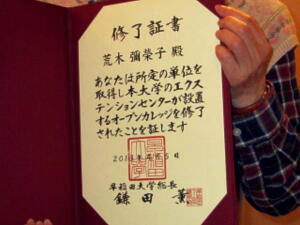 修了証書
荒木 彌榮子 殿
あなたは所定の単位を
取得し本大学のエクス
テンションセンターが設置
するオープンカレッジを修了
されたことを証します
早稲田大学総長
鎌田 薫